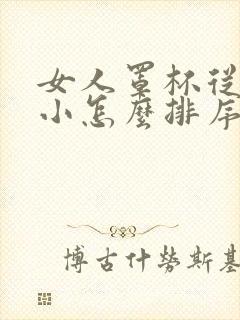 女人罩杯從
小怎麼排序
博古什勞斯基